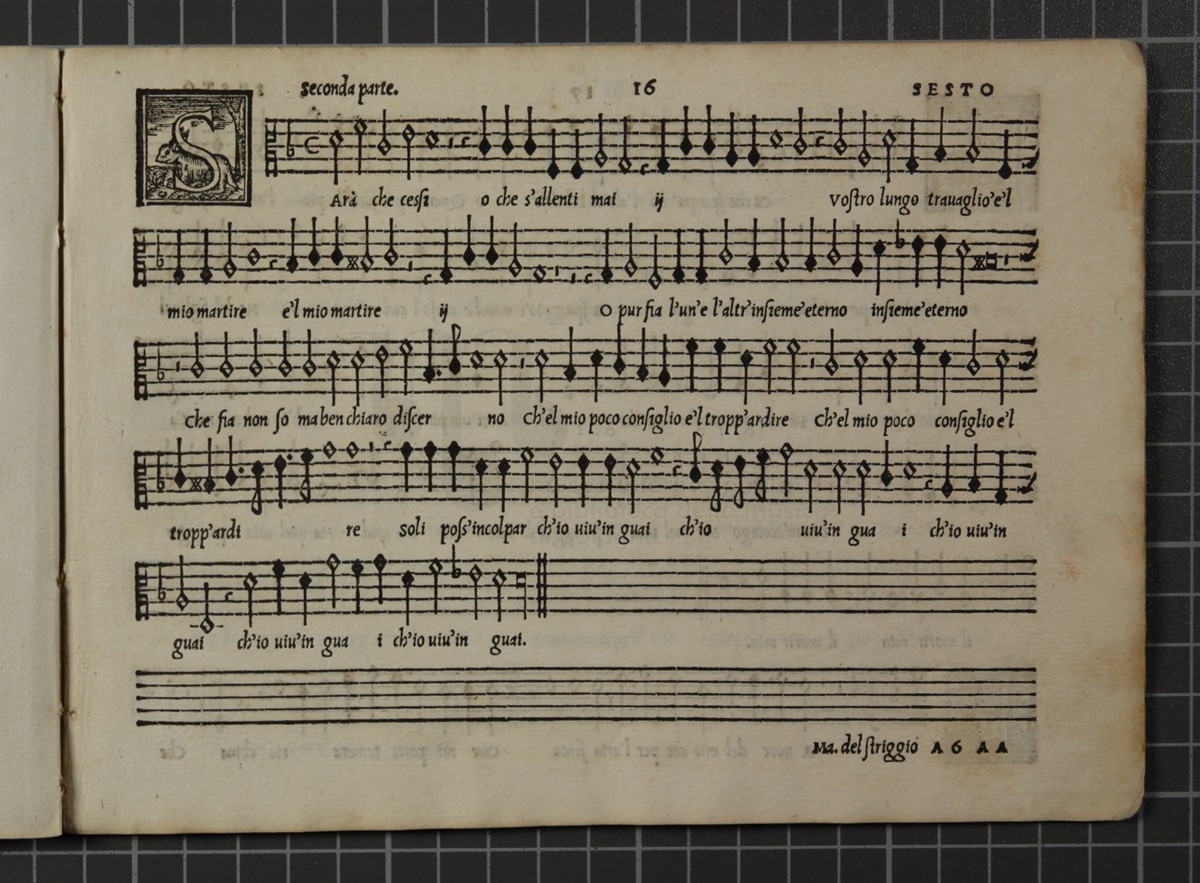 Seconda parte. 16 SESTO
SArà che cessi o che s'allenti mai ij Vostro lungo trauaglio'e'l
mio martire e'l mio martire ij O pur fia l'un'e l'altr'insieme'eterno insieme'eterno
Che fia non so ma ben chiaro discer no Ch'el mio poco consiglio e'l tropp'ardire Ch'el mio poco consiglio e'l
tropp'ardi re soli poss'incolpar ch'io uiu'in guai ch'io uiu'in gua i ch'io uiu'in
guai ch'io uiu'in gua i ch'io uiu'in guai.
Ma. del striggio A 6 A A